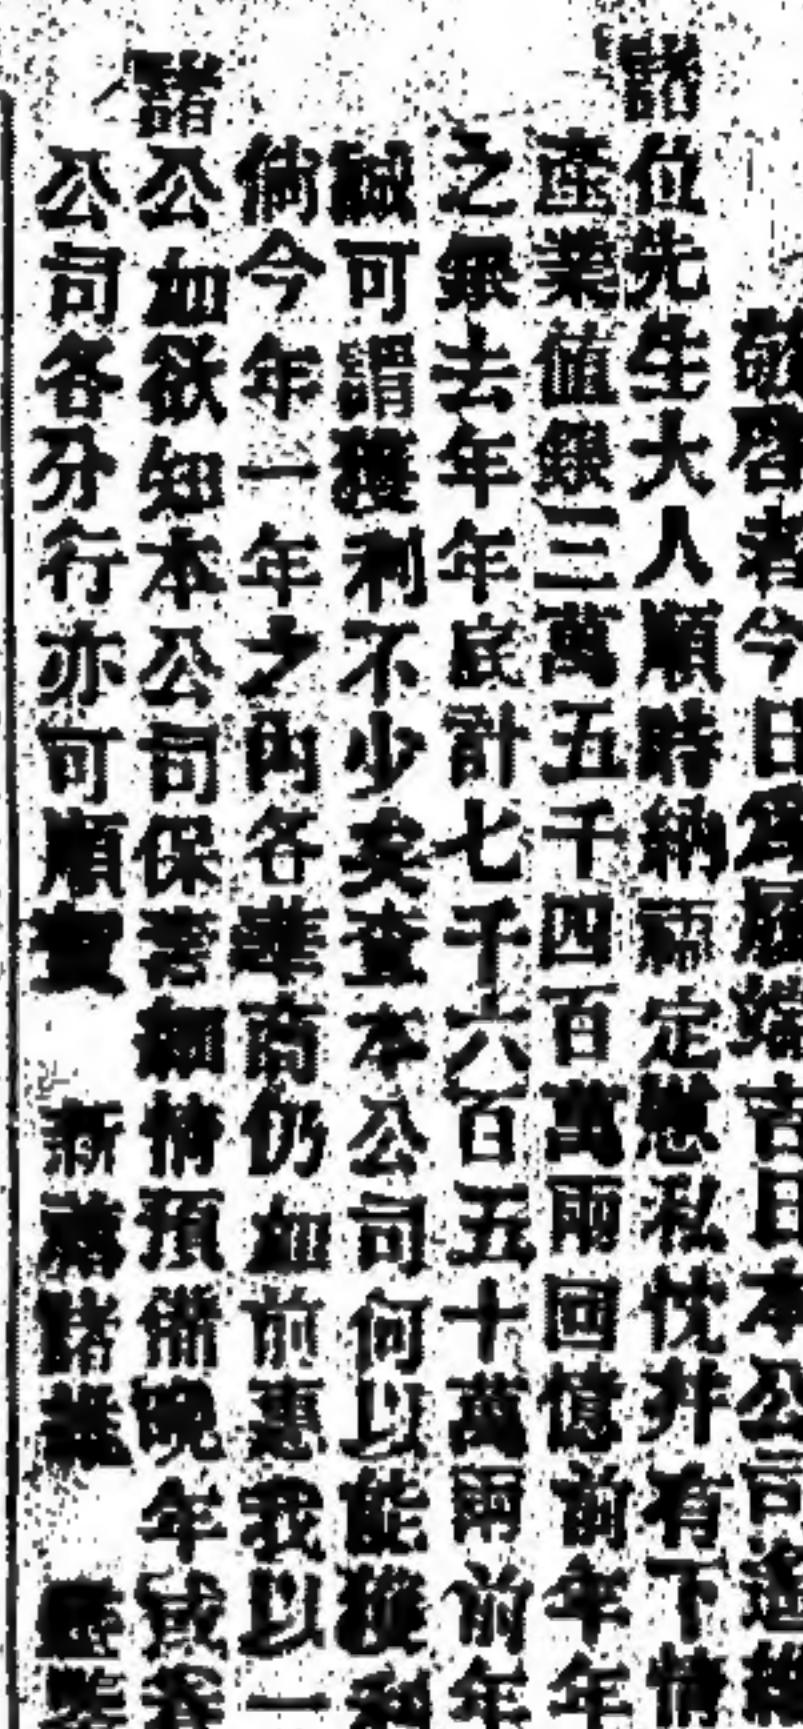 敬啓者今日為履端吉日本公司遙
諸位先生大人順時納福定慰私忱并有下情
產業值銀三萬五千四百萬兩回憶前年年
之銀去年年底計七千六百五十萬兩前年
誠可謂獲利不少矣查本公司何以能獲利
倘今年一年之內各華商仍如前惠我以一
諸公如欲知本公司保壽細情預備晚年或吝
公司各分行亦可順賀 新禧諸